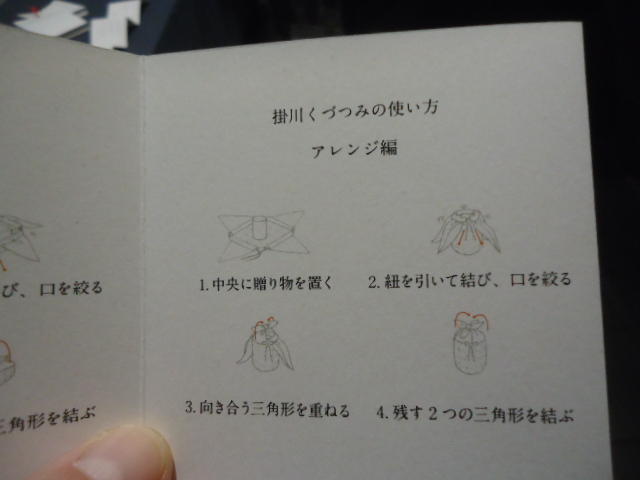 び、口を絞る
三角形を結ぶ
掛川くづつみの使い方
アレンジ編
1.中央に贈り物を置く
2.紐を引いて結び、口を絞る
3.向き合う三角形を重ねる
4.残す2つの三角形を結ぶ